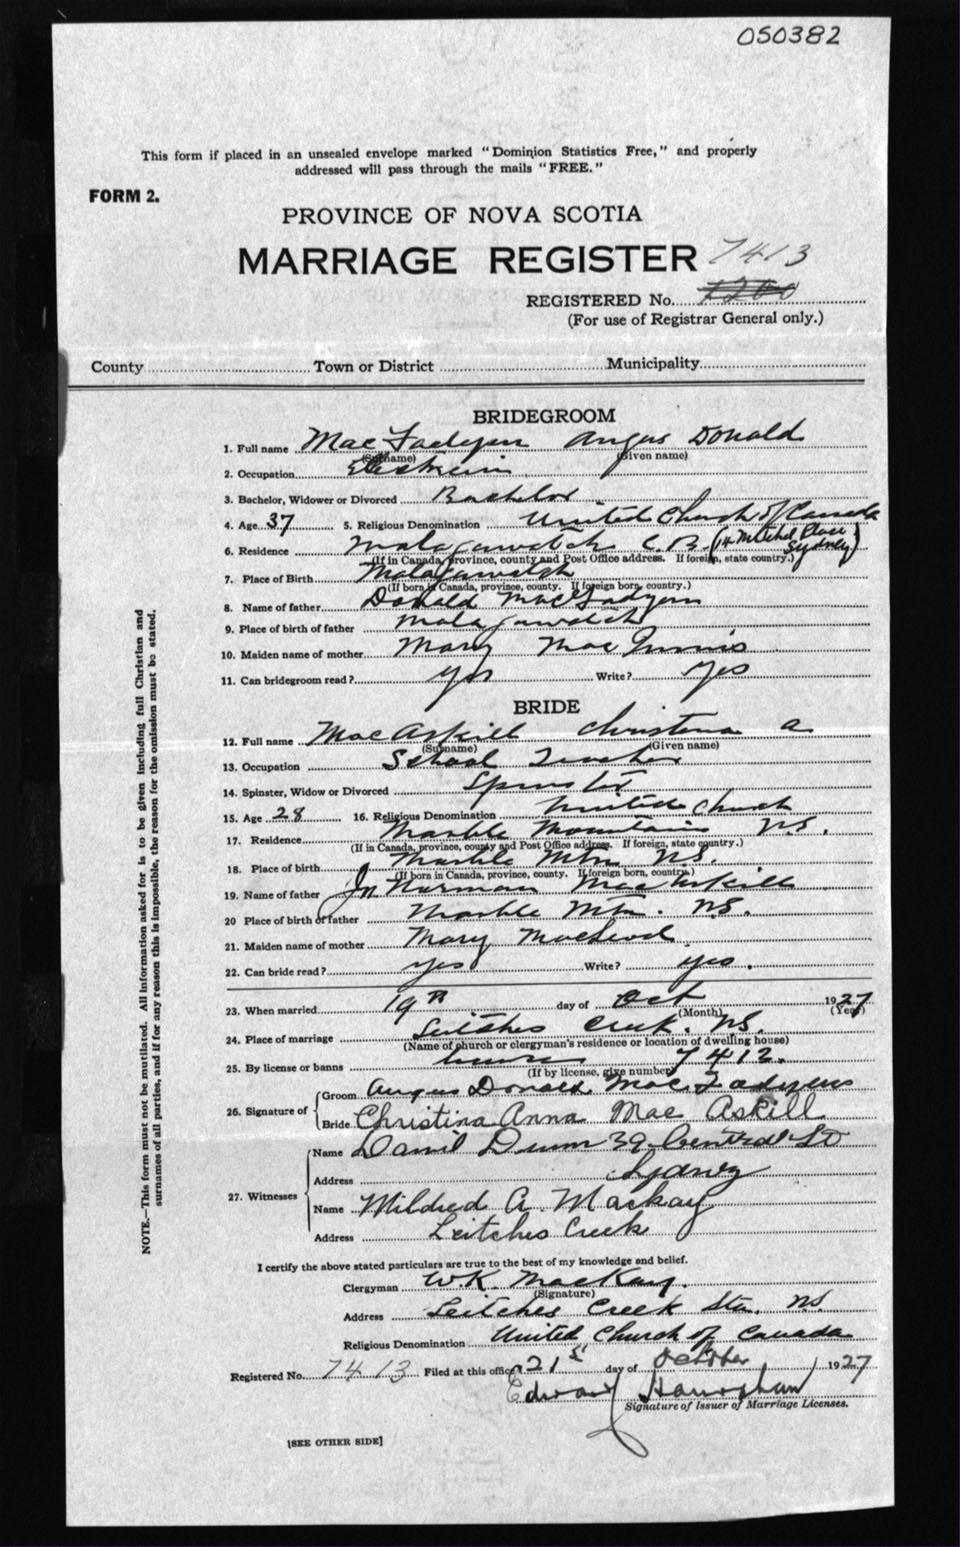 050382
This form if placed in an unsealed envelope marked "Dominion Statistics Free," and properly
addressed will pass through the mails "FREE."
FORM 2.
PROVINCE OF NOVA SCOTIA
MARRIAGE REGISTER 7413
REGISTERED No. 1200
(For use of Registrar General only.)
County Town or District Municipality
BRIDEGROOM
1. Full name MacFadyen Angus Donald
(Surname) (Given name)
2. Occupation
3. Bachelor, Widower or Divorced Bachelor
4. Age 37 5. Religious Denomination United Church of Canada
6. Residence Malagawatch C.B. (14 Mitchel Place Sydney)
(If in Canada, province, county and Post Office address. If foreign, state country.)
7. Place of Birth Malagawatch
(If born in Canada, province, county. If foreign born, country.)
8. Name of father Donald MacFadyen
9. Place of birth of father Malagawatch
10. Maiden name of mother Mary MacInnis
11. Can bridegroom read? yes Write? yes
BRIDE
12. Full name MacAskill Christena A
(Surname) (Given name)
13. Occupation School Teacher
14. Spinster, Widow or Divorced Spinster
15. Age 28 16. Religious Denomination United Church
17. Residence Marble Mountain N.S.
(If in Canada, province, county and Post Office address. If foreign, state country.)
18. Place of birth Marble Mtn N.S.
(If born in Canada, province, county. If foreign born, country.)
19. Name of father Jn Norman MacAskill
20 Place of birth of father Marble Mtn. N.S.
21. Maiden name of mother Mary MacLeod
22. Can bride read? yes Write? yes.
23. When married 19th day of Oct 1927
(Month) (Year)
24. Place of marriage Leitches Creek. N.S.
(Name of church or clergyman's residence or location of dwelling house)
25. By license or banns 7412.
(If by license, give number)
26. Signature of Groom Angus Donald MacFadyen
Bride Christina Anna MacAskill
27. Witnesses Name Daniel Dunn 39 Central St
Address Sydney
Name Mildred A. Mackay
Address Leitches Creek
I certify the above stated particulars are true to the best of my knowledge and belief.
Clergyman W.K. MacKay.
(Signature)
Address Leitches Creek Sta. N.S.
Religious Denomination United Church of Canada
Registered No. 7413 Filed at this office 21st day of October 1927
Edward
Signature of Issuer of Marriage Licenses.
[SEE OTHER SIDE]
NOTE.—This form must not be mutilated. All information asked for is to be given including full Christian and
surnames of all parties, and if for any reason this is impossible, the reason for the omission must be stated.